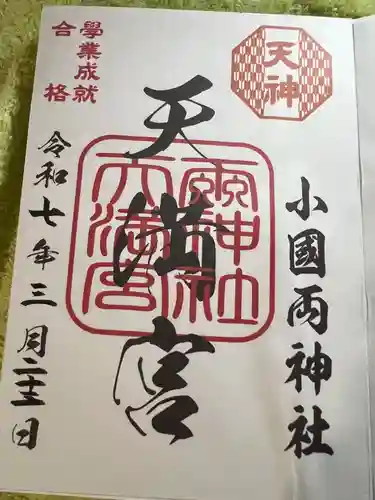 天神
小國両神社
天満宮
両神社
天満宮
學業成就
合格
令和七年三月二十三日